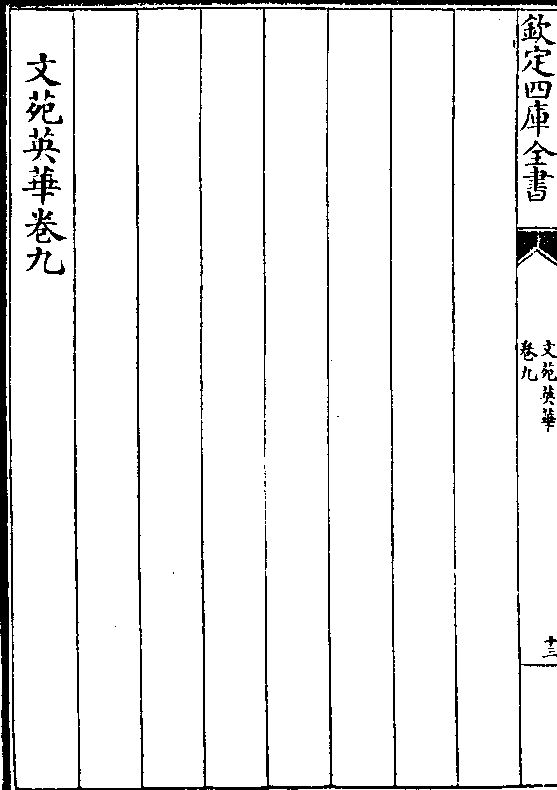 欽定四庫全書
文苑英華
卷九
十三
文苑英華卷九